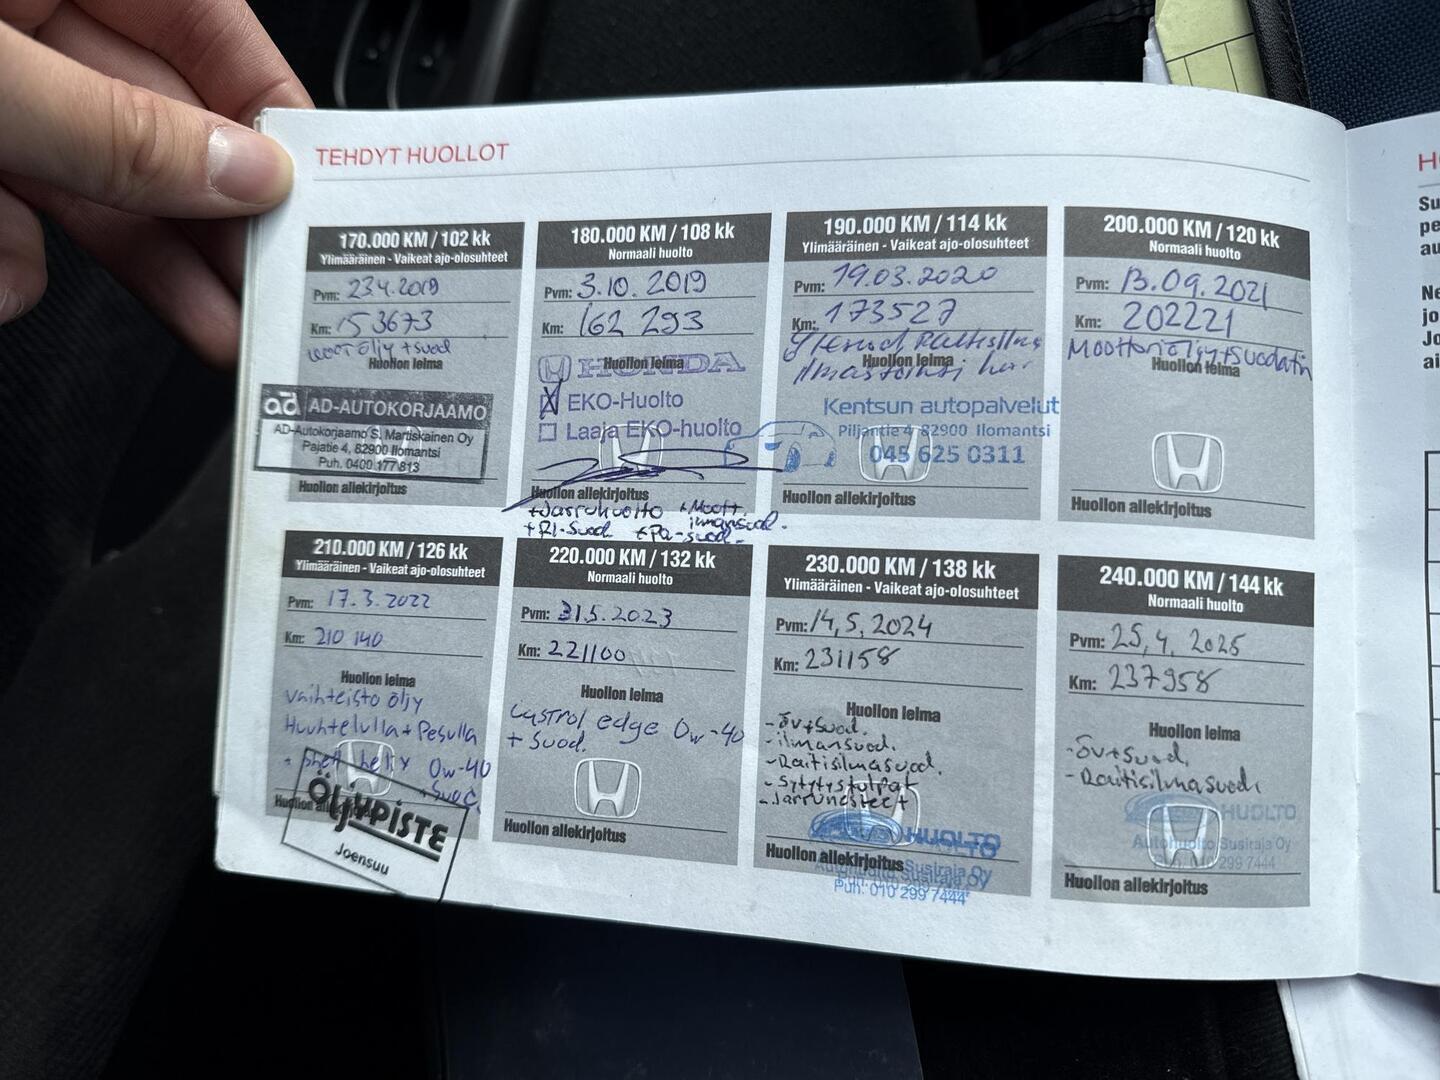 TEHDYT HUOLLOT
170.000 KM / 102 kk
Ylimääräinen - Vaikeat ajo-olosuhteet
Pvm: 23.4.2019
Km: 153673
öljy + suod
Huollon leima
ad AD-AUTOKORJAAMO
AD-Autokorjaamo S. Martiskainen Oy
Pajatie 4, 82900 Ilomantsi
Puh. 0400 177 813
Huollon allekirjoitus
180.000 KM / 108 kk
Normaali huolto
Pvm: 3.10.2019
Km: 162 293
Huollon leima
HONDA
EKO-Huolto
Laaja EKO-huolto
Huollon allekirjoitus
+Jarruhuolto +Moott.
ilmansuod.
+RI-suod +Pa-suod.
190.000 KM / 114 kk
Ylimääräinen - Vaikeat ajo-olosuhteet
Pvm: 19.03.2020
Km: 173527
Huollon leima
Kentsun autopalvelut
Piljantie 4 82900 Ilomantsi
045 625 0311
Huollon allekirjoitus
200.000 KM / 120 kk
Normaali huolto
Pvm: 13.09.2021
Km: 202221
Moottoriöljy+suodatin
Huollon leima
Huollon allekirjoitus
210.000 KM / 126 kk
Ylimääräinen - Vaikeat ajo-olosuhteet
Pvm: 17.3.2022
Km: 210 140
Huollon leima
vaihteisto öljy
Huuhtelulla + Pesulla
+ shell helix 0w-40
+ suod.
Huollon
ÖLJYPISTE
Joensuu
220.000 KM / 132 kk
Normaali huolto
Pvm: 31.5.2023
Km: 221100
Huollon leima
Castrol edge 0w-40
+ suod.
Huollon allekirjoitus
230.000 KM / 138 kk
Ylimääräinen - Vaikeat ajo-olosuhteet
Pvm: 14,5,2024
Km: 231158
Huollon leima
-öv+suod.
-ilmansuod.
-Raitisilmasuod.
-Sytytystulpat
-Jarrunesteet
HUOLTO
Huollon allekirjoitus
Autohuolto Susiraja Oy
Puh. 010 299 7444
240.000 KM / 144 kk
Normaali huolto
Pvm: 25,4, 2025
Km: 237958
Huollon leima
-öv+suod.
-Raitisilmasuod.
HUOLTO
Autohuolto Susiraja Oy
010 299 7444
Huollon allekirjoitus